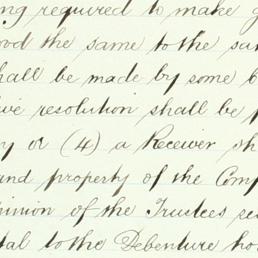 ing required to make g
ood the same to the sat
hall be made by some C
ive resolution shall be p
y or (4) a Receiver sh
and property of the Comp
pinion of the Trustees
tal to the Debenture hol